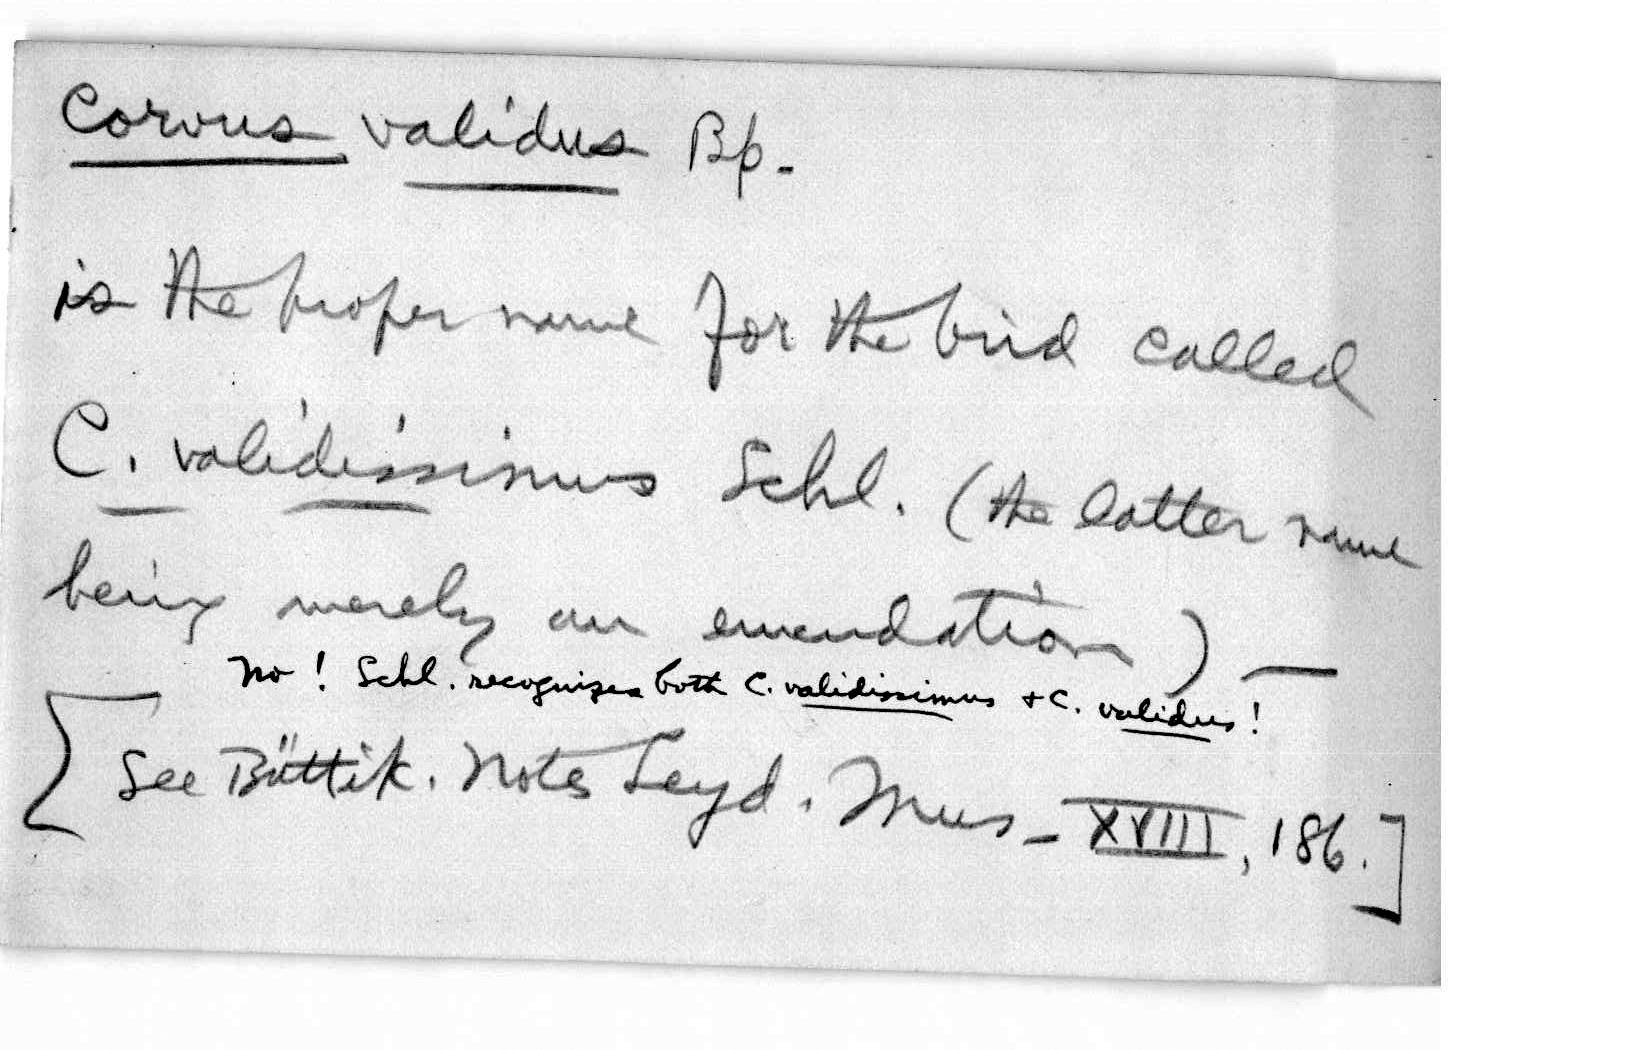 Corvus validus Bp.
is the proper name for the bird called
C. validissimus Schl. (the latter name
being merely an emendation) —
No! Schl. recognizes both C. validissimus & C. validus!
[See Büttik. Notes Leyd. Mus. XVIII, 186.]